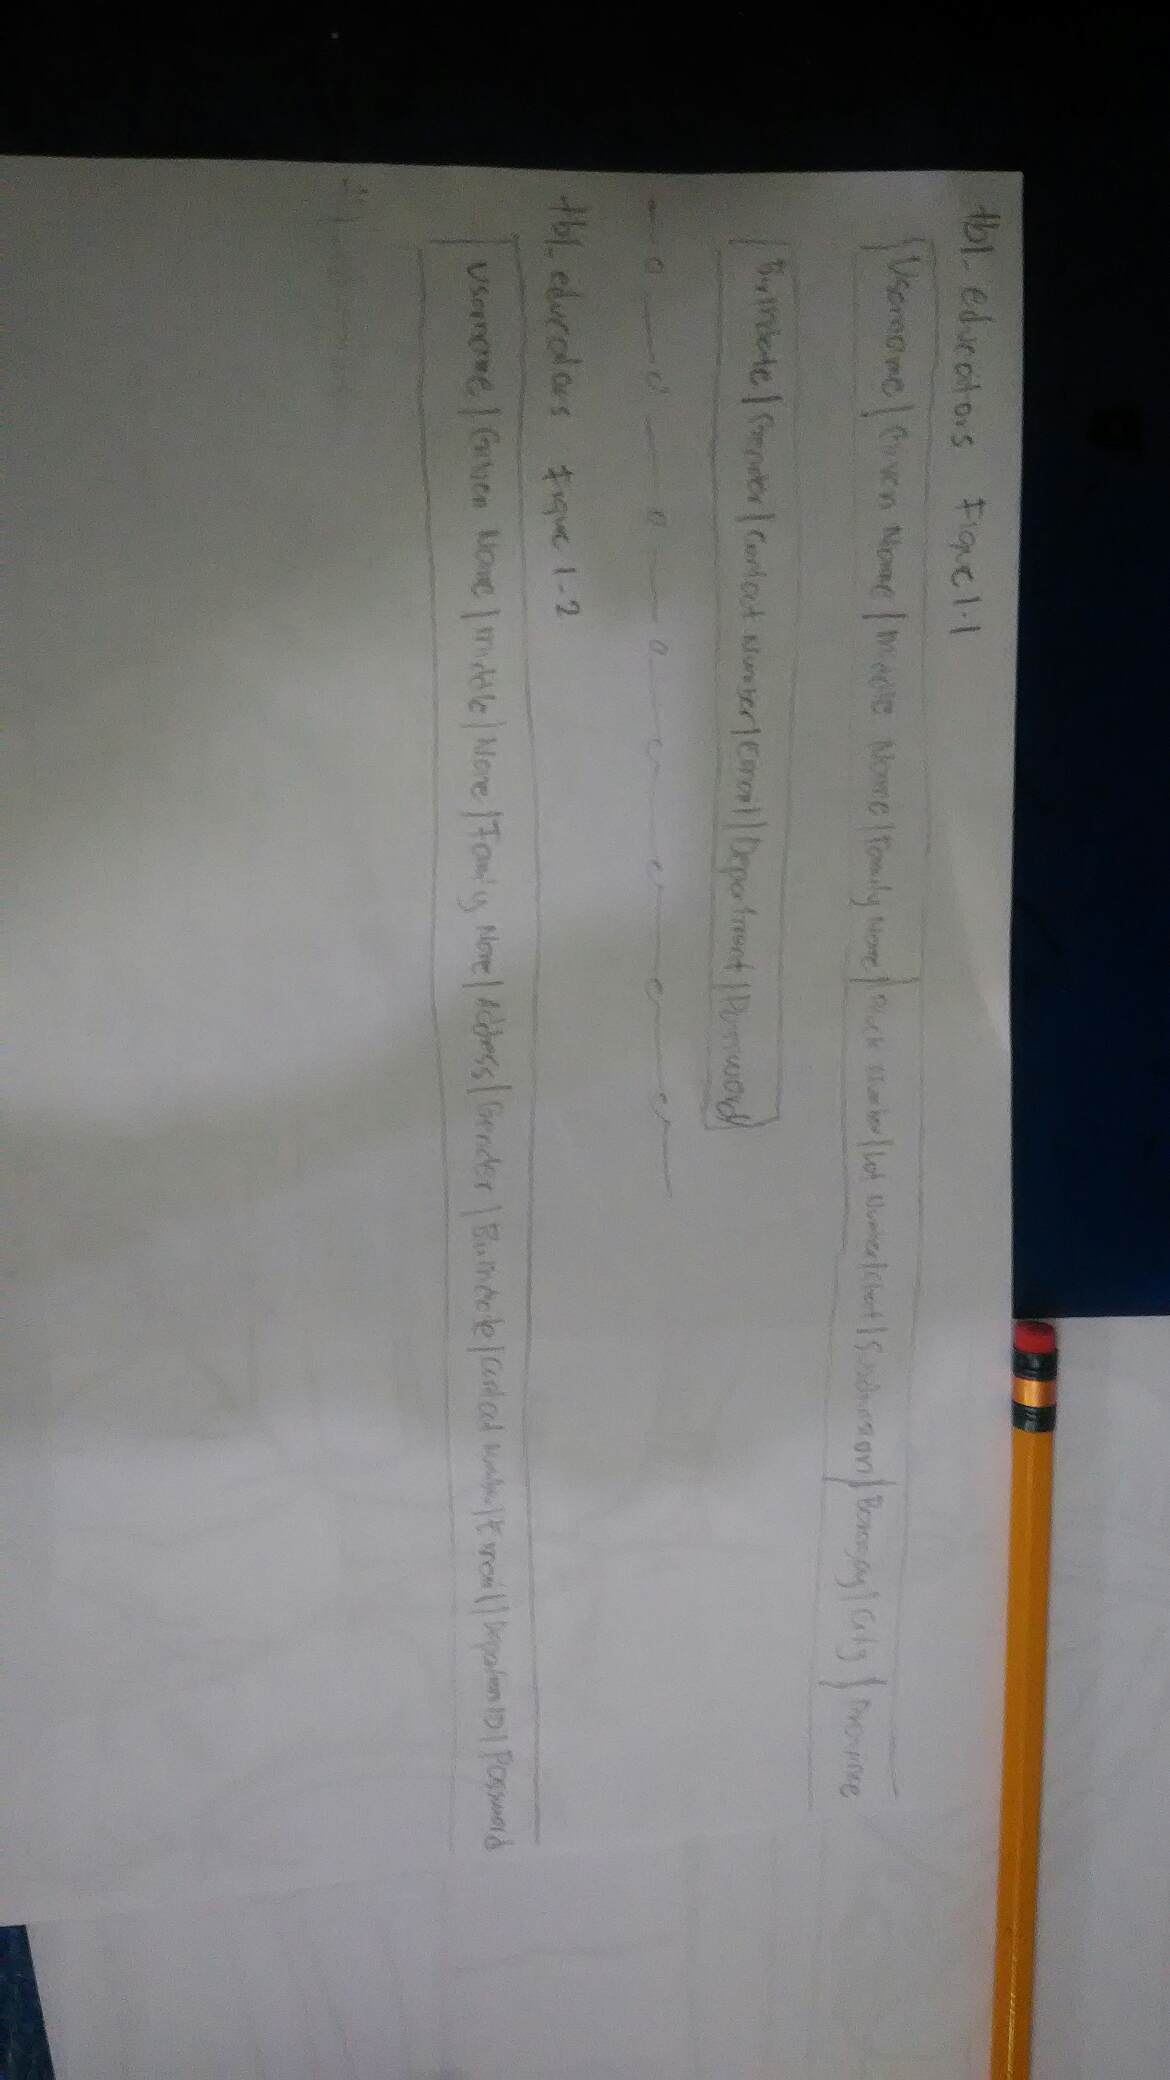 tbl_ educators Figure 1.1
Username | Given Name | Middle Name | Family Name | Block Number | Lot Number | Street | Subdivision | Barangay | City | Province
Birthdate | Gender | Contact Number | Email | Department | Password
tbl_ educators Figure 1-2
Username | Given Name | Middle | Name | Family Name | Address | Gender | Birthdate | Contact Number | Email | Department ID | Password